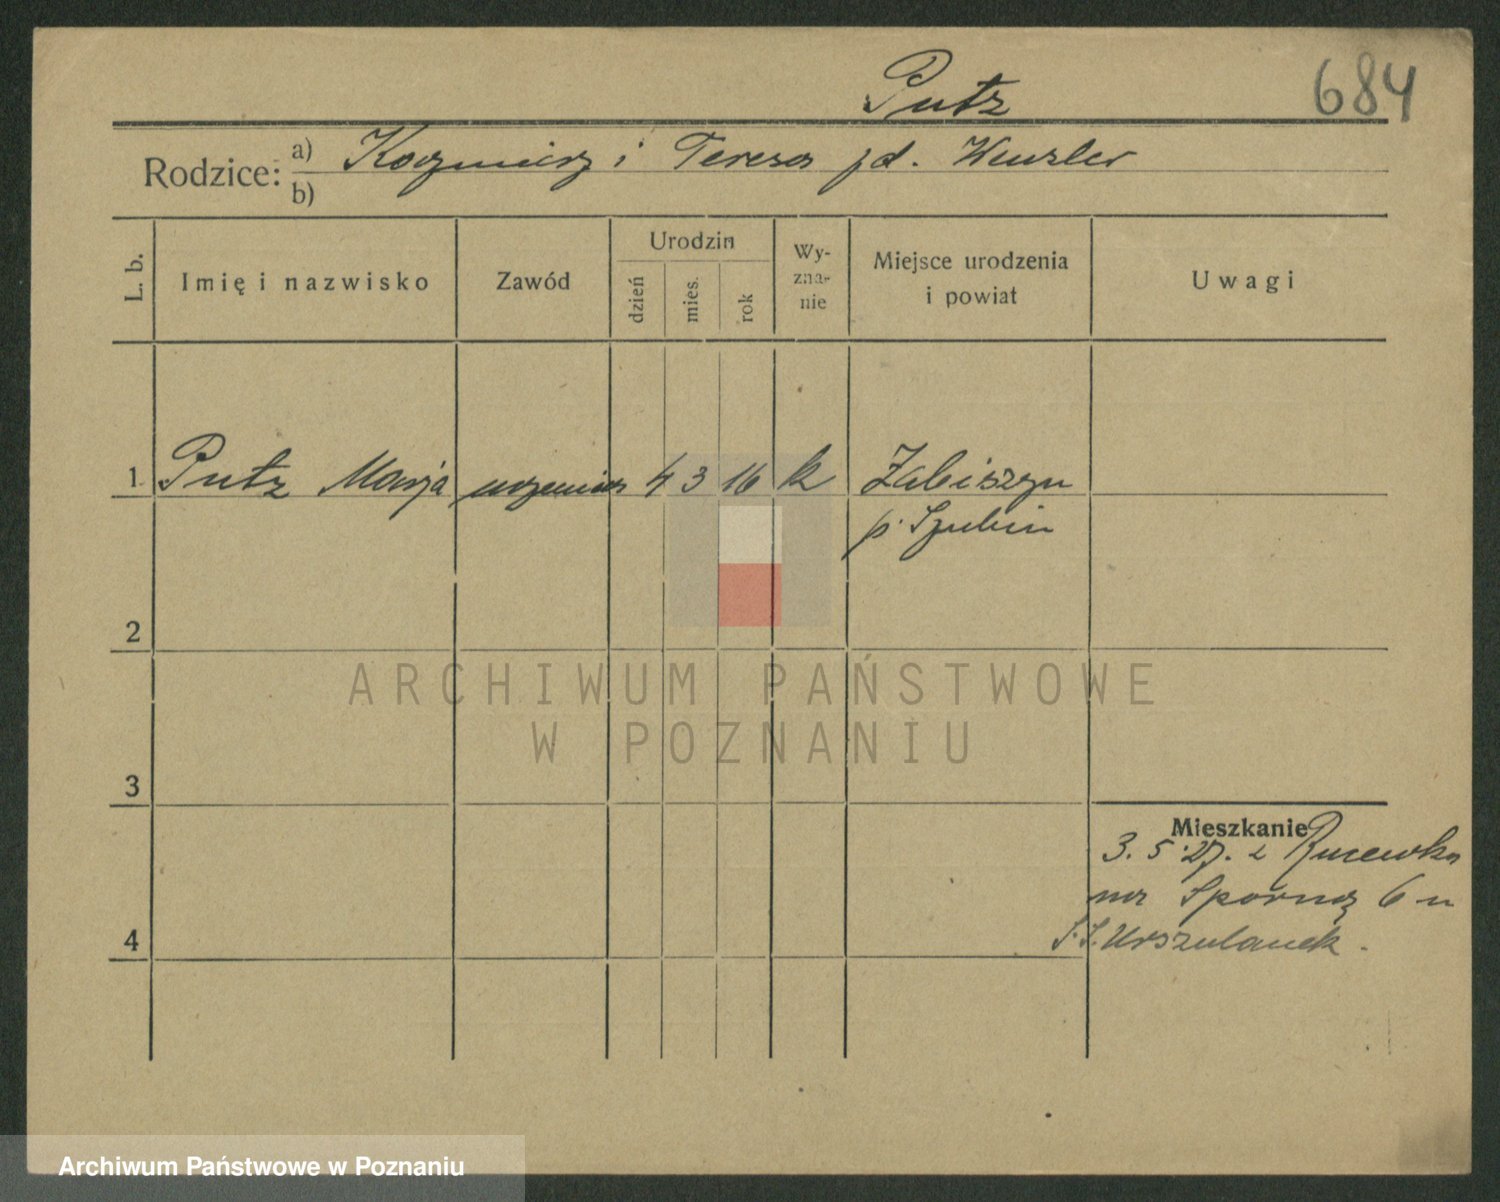 Putz
684
Rodzice: a) Kazimierz i Teresa zd. Wenzler
b)
L. b.
Imię i nazwisko
Zawód
Urodzin
dzień
mies.
rok
Wy-
zna-
nie
Miejsce urodzenia
i powiat
Uwagi
1 Putz Marja uczenica 4 3 16 k Łabiszyn
p. Szubin
2
3
4
Mieszkanie
3. 5. 27. z
na Sporną 6 u
S.S. Urszulanek.
ARCHIWUM PAŃSTWOWE
W POZNANIU
Archiwum Państwowe w Poznaniu